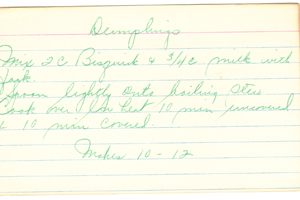 Dumplings
Mix 2 C Bisquick & 3/4 c milk with
fork.
Spoon lightly onto boiling stew
Cook over low heat 10 min uncovered
& 10 min covered
Makes 10 - 12